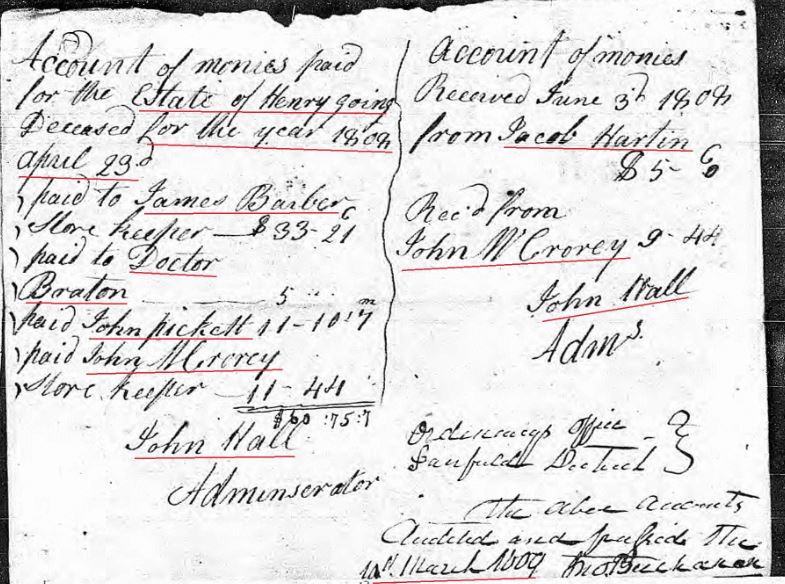 Account of monies paid
for the Estate of Henry going
Deceased for the year 1808
april 23d
paid to James Barber
Store keeper — $ 33-21 c
paid to Doctor
Braton 5
paid John pickett 11-10:7 m
paid John McCrorey
Store keeper — 11-44
$60:75:7
John Hall
Adminserator
Account of monies
Received June 3d 1808
from Jacob Hartin
$5- 6 c
Rec'd from
John McCrorey 9-44
John Hall
Adm's.
Ordinarys office
Fairfield District
the above accounts
Audited and passed the
March 1809 Jno Buchanan